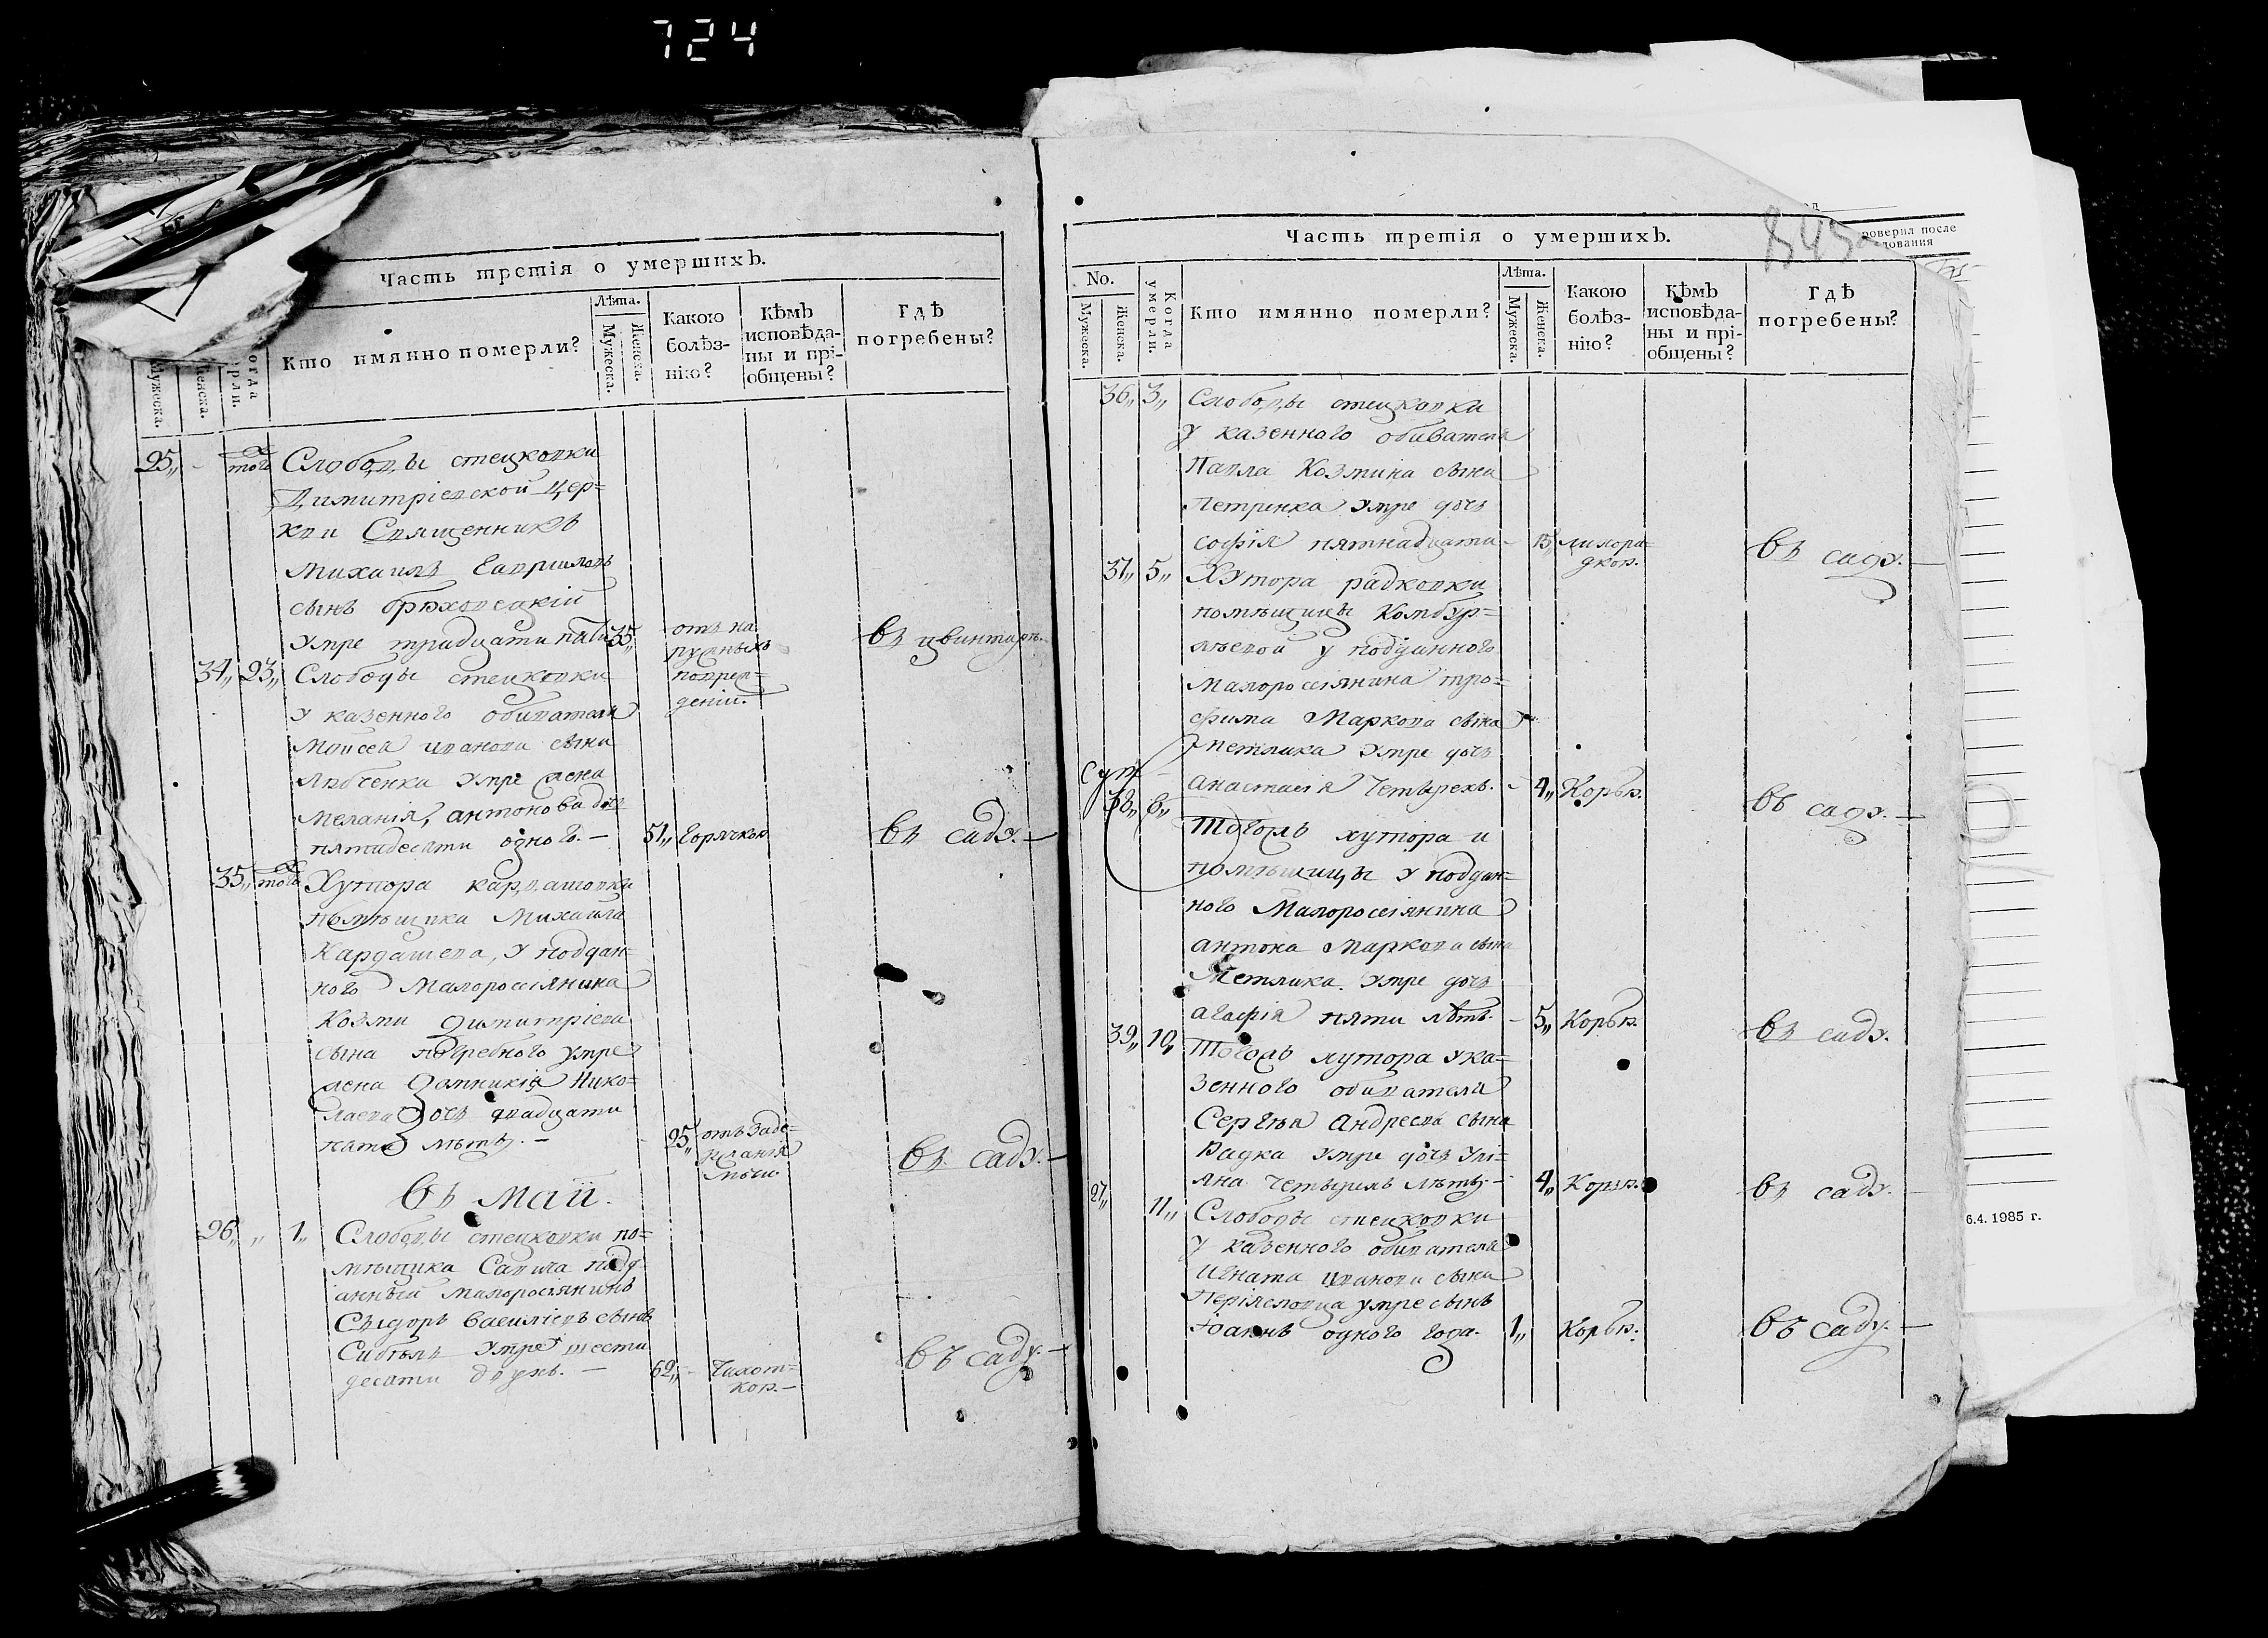 724
Часть третія о умершихъ.
Мужеска.
Женска.
Когда умерли.
Кто имянно померли?
Лѣта.
Мужеска.
Женска.
Какою болѣз-
нію?
Кѣмъ
исповѣда-
ны и прі-
общены?
Гдѣ
погребены?
25,, - того Слободы стецковки
Димитріевской цер=
кви Священникъ
Михаилъ Гавриловъ
сынъ брюховецкій
умре тридцати пяти 35,, отъ на въ цвинтарѣ.
34,, 23,, Слободы стецковки
поврен=
деніи.
у казенного обивателя
Моисея иванова сына
умре жена
Меланія, антонова дочь
пятидесяти одного. — 51,, горячкою въ саду. —
35,, того Хутора кардашовки
помѣщика Михаила
Кардашева, у поддан=
ного Малоросіянина
Козми Димитріева
сына погребного умре
жена Домникія Нико=
лаева дочь двадцати
пяти лѣтъ. — 25,, отъ заде= въ саду. —
мочи
въ Маіи.
26,, ,, 1,, Слободы стецковки по=
мѣщика Савича подд
анный малоросіянинъ
Сидоръ василіевъ сынъ
умре шести
десяти двухъ. — 62,, - Чахот= въ саду. —
кою. —
Часть третія о умершихъ.
845
роверил после
дования
No.
Мужеска.
Женска.
Когда умерли.
Кто имянно померли?
Лѣта.
Мужеска.
Женска.
Какою
болѣз-
нію?
Кѣмъ
исповѣда-
ны и прі-
общены?
Гдѣ
погребены?
36,, 3,, Слободы стецковки
у казенного обивателя
Павла Козмина сына
Петринка умре дочь
софія пятнадцати - 15,, лихора= въ саду. —
дкою.
37,, 5,, Хутора радковки
помѣщицы Комбур=
лѣевой у подданного
Малоросіянина тро=
фима Маркова сына
метлика умре дочь
анастасія Четырехъ. - 4,, Корью. въ саду. —
38,, 6,, Тогожъ хутора и
помѣщицы у поддан=
ного Малоросіянина
антона Маркова сына
Метлика умре дочь
агафія пяти лѣтъ. - 5,, Корью. въ саду.
39,, 10,, Тогожъ хутора у ка=
зенного обивателя
Сергѣя андреева сына
Радка умре дочь улі=
яна четырехъ лѣтъ - 4,, Корью. въ саду. —
27,, 11,, Слободы стецковки
у казенного обивателя
игната иванова сына
умре сынъ
Іоаннъ одного года. 1,, Корью. въ саду. —
6.4. 1985 г.